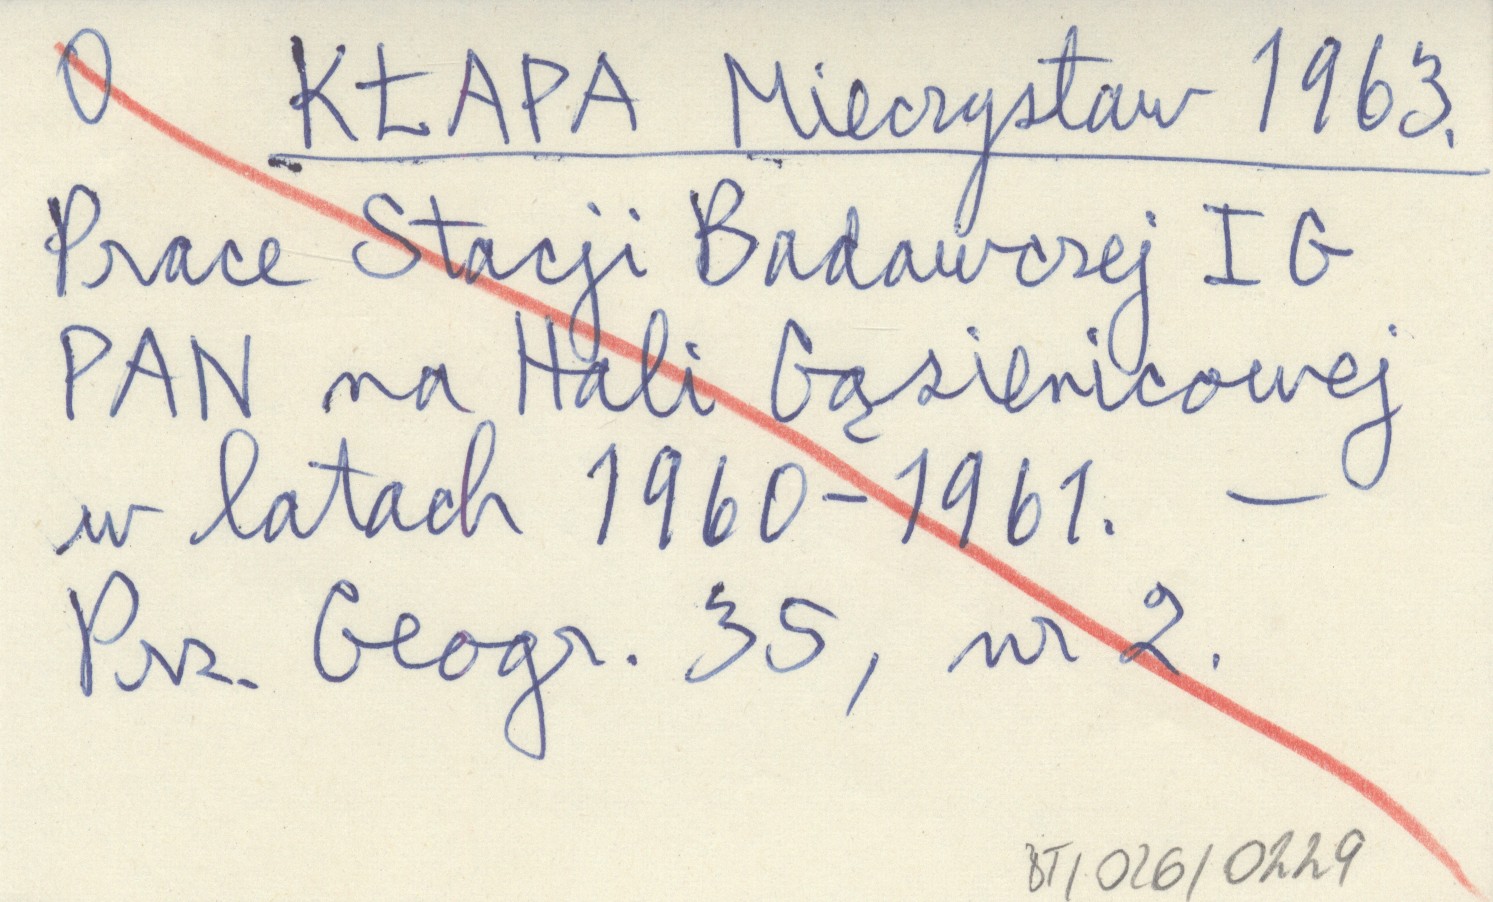 0 KŁAPA Mieczysław 1963.
Prace Stacji Badawczej IG
PAN na Hali Gąsienicowej
w latach 1960-1961. —
Prz. Geogr. 35, nr 2.
BT/026/0229